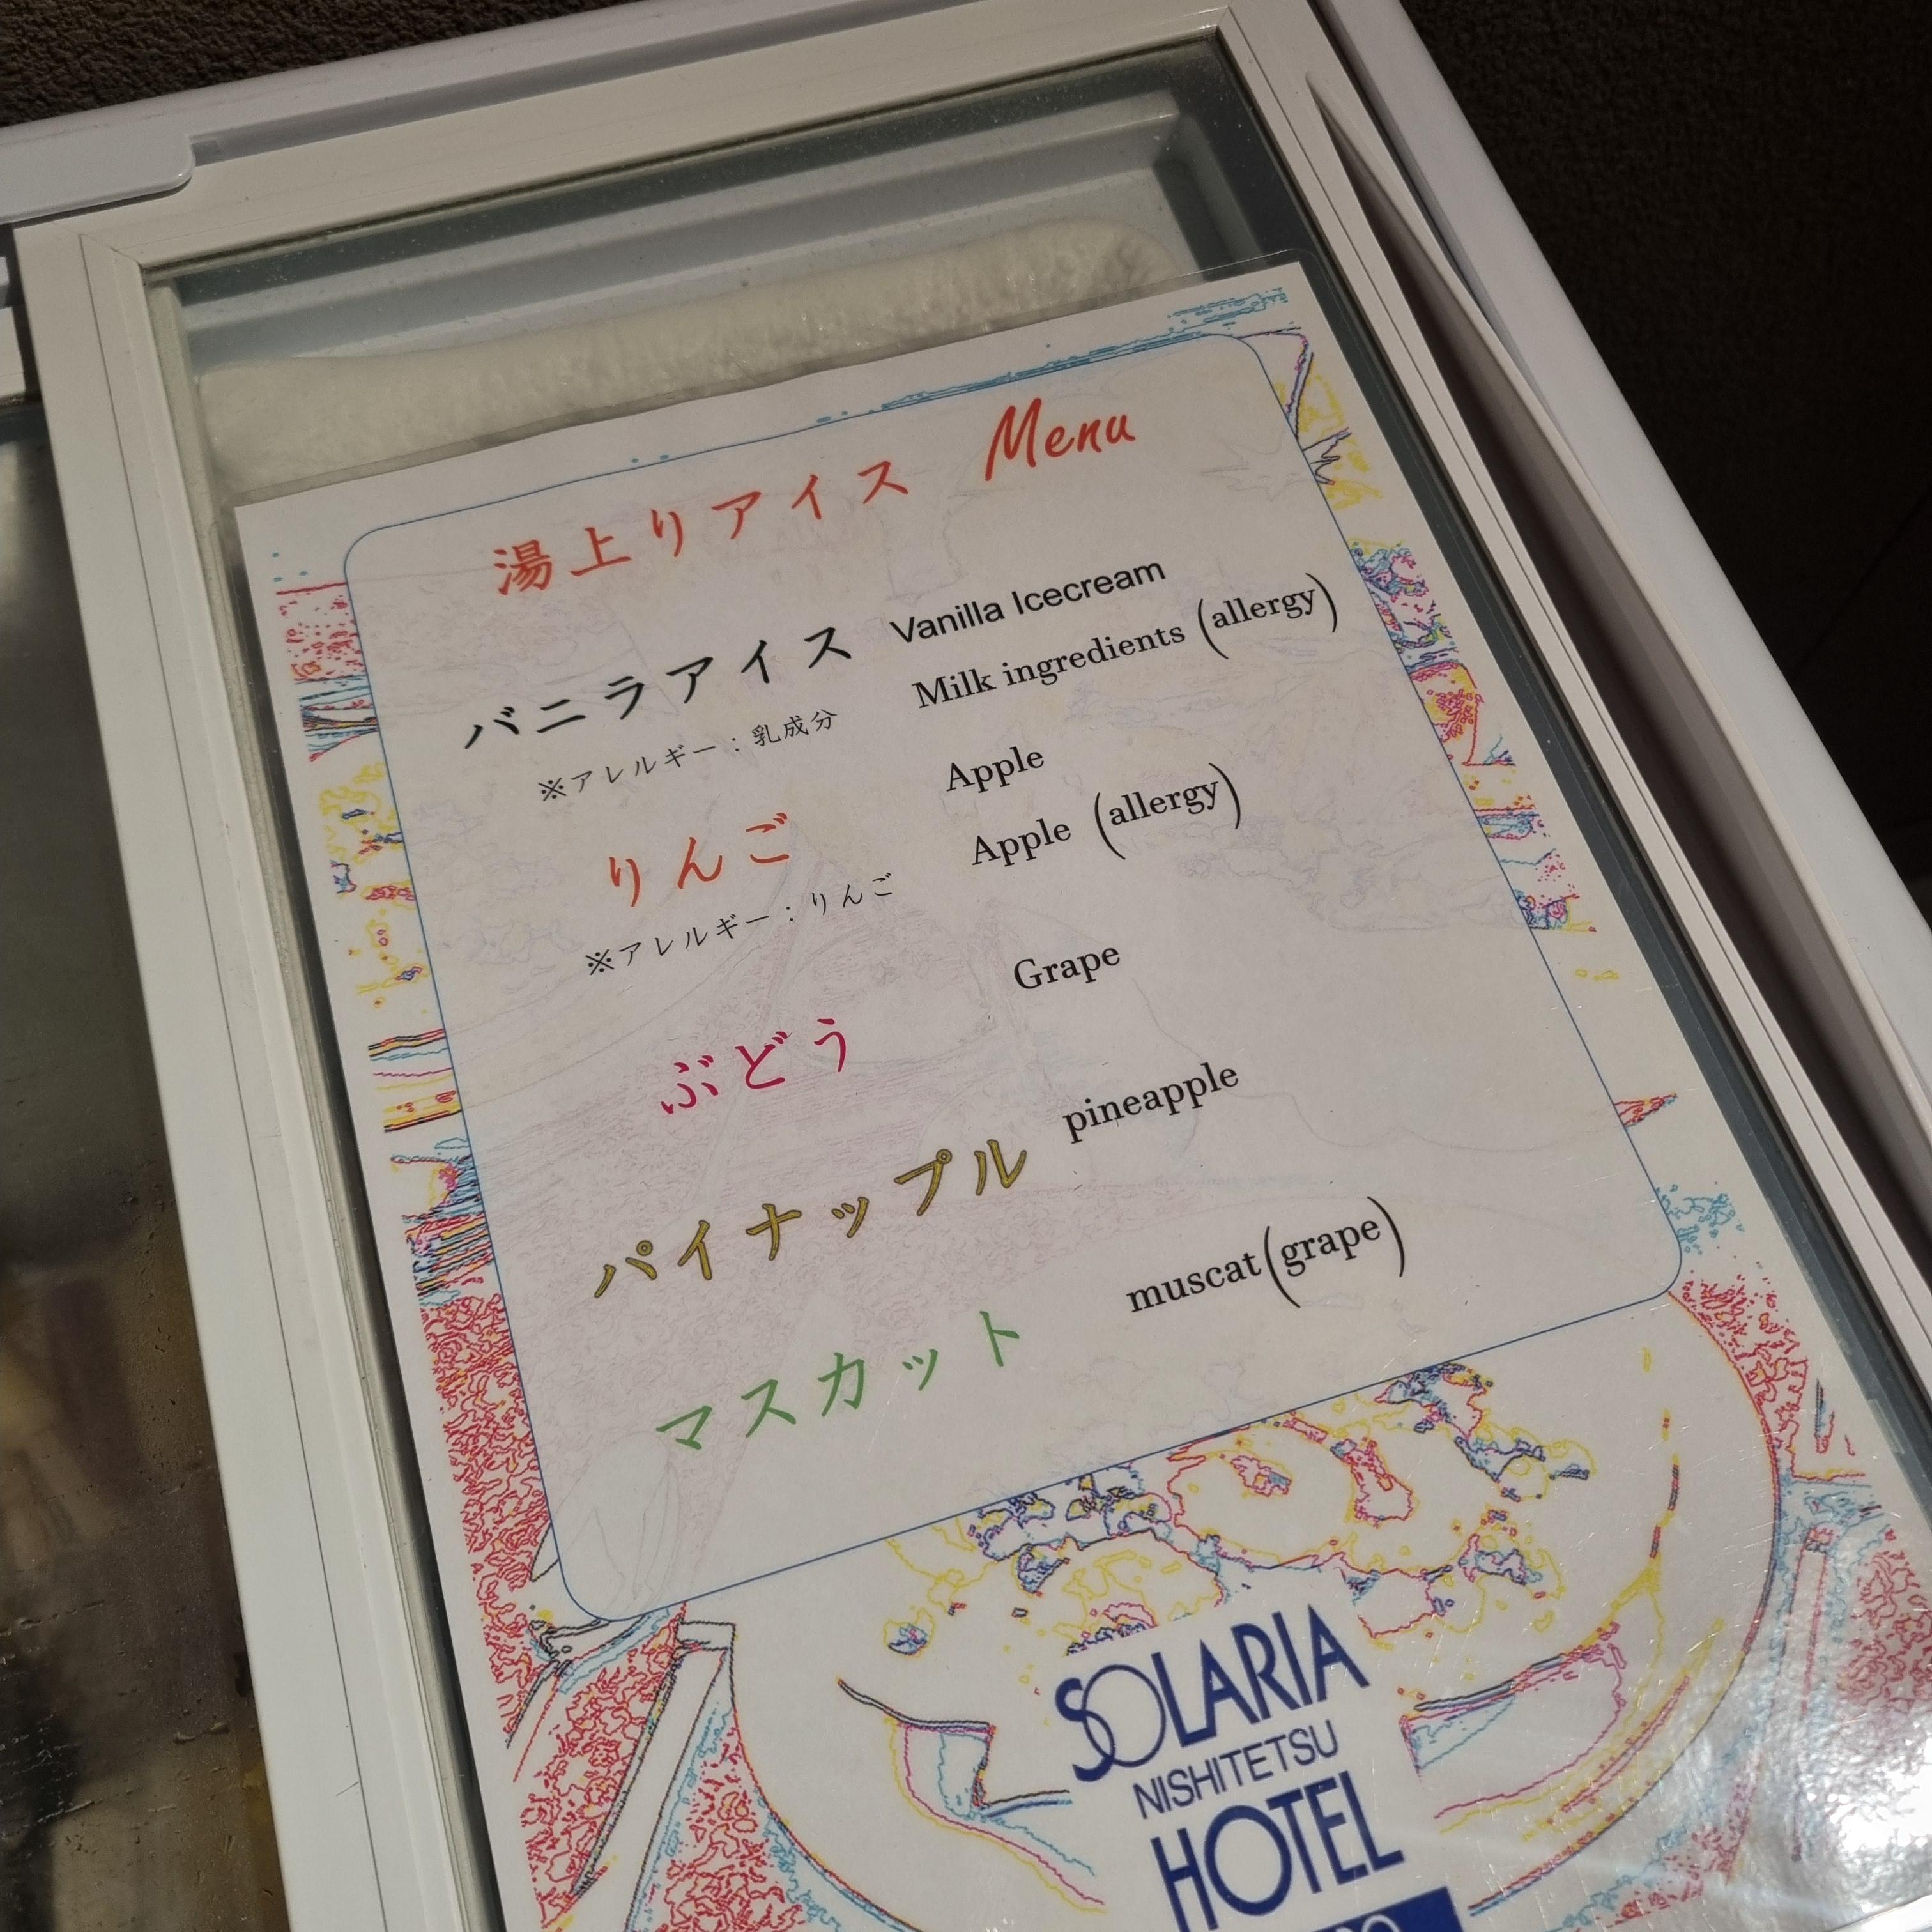 湯上りアイス Menu
バニラアイス Vanilla Icecream
※アレルギー：乳成分 Milk ingredients (allergy)
りんご Apple
※アレルギー：りんご Apple (allergy)
ぶどう Grape
パイナップル pineapple
マスカット muscat(grape)
SOLARIA
NISHITETSU
HOTEL